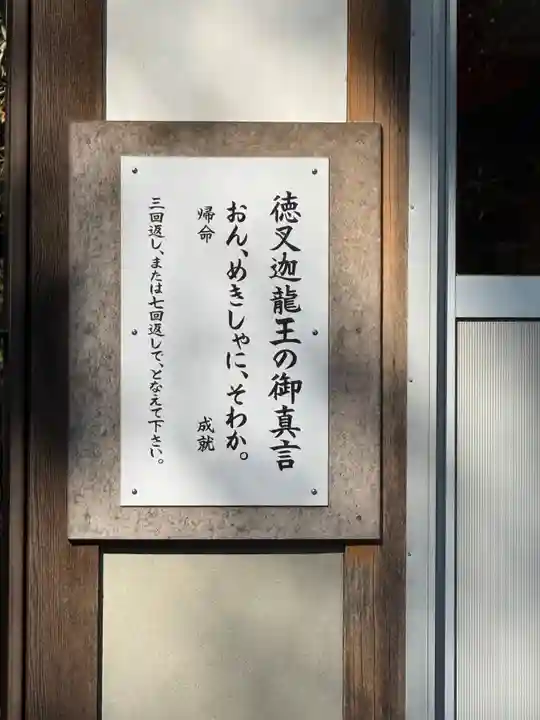 徳叉迦龍王の御真言
おん、めきしゃに、そわか。
帰命 成就
三回返し、または七回返しで、となえて下さい。